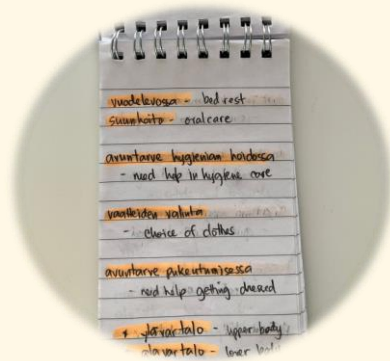 vuodelevossa - bed rest
suunhoito - oral care
avuntarve hygienian hoidossa
- need help in hygiene care
vaatteiden valinta
- choice of clothes
avuntarve pukeutumisessa
- need help getting dressed
ylävartalo - upper body
alavartalo - lower body